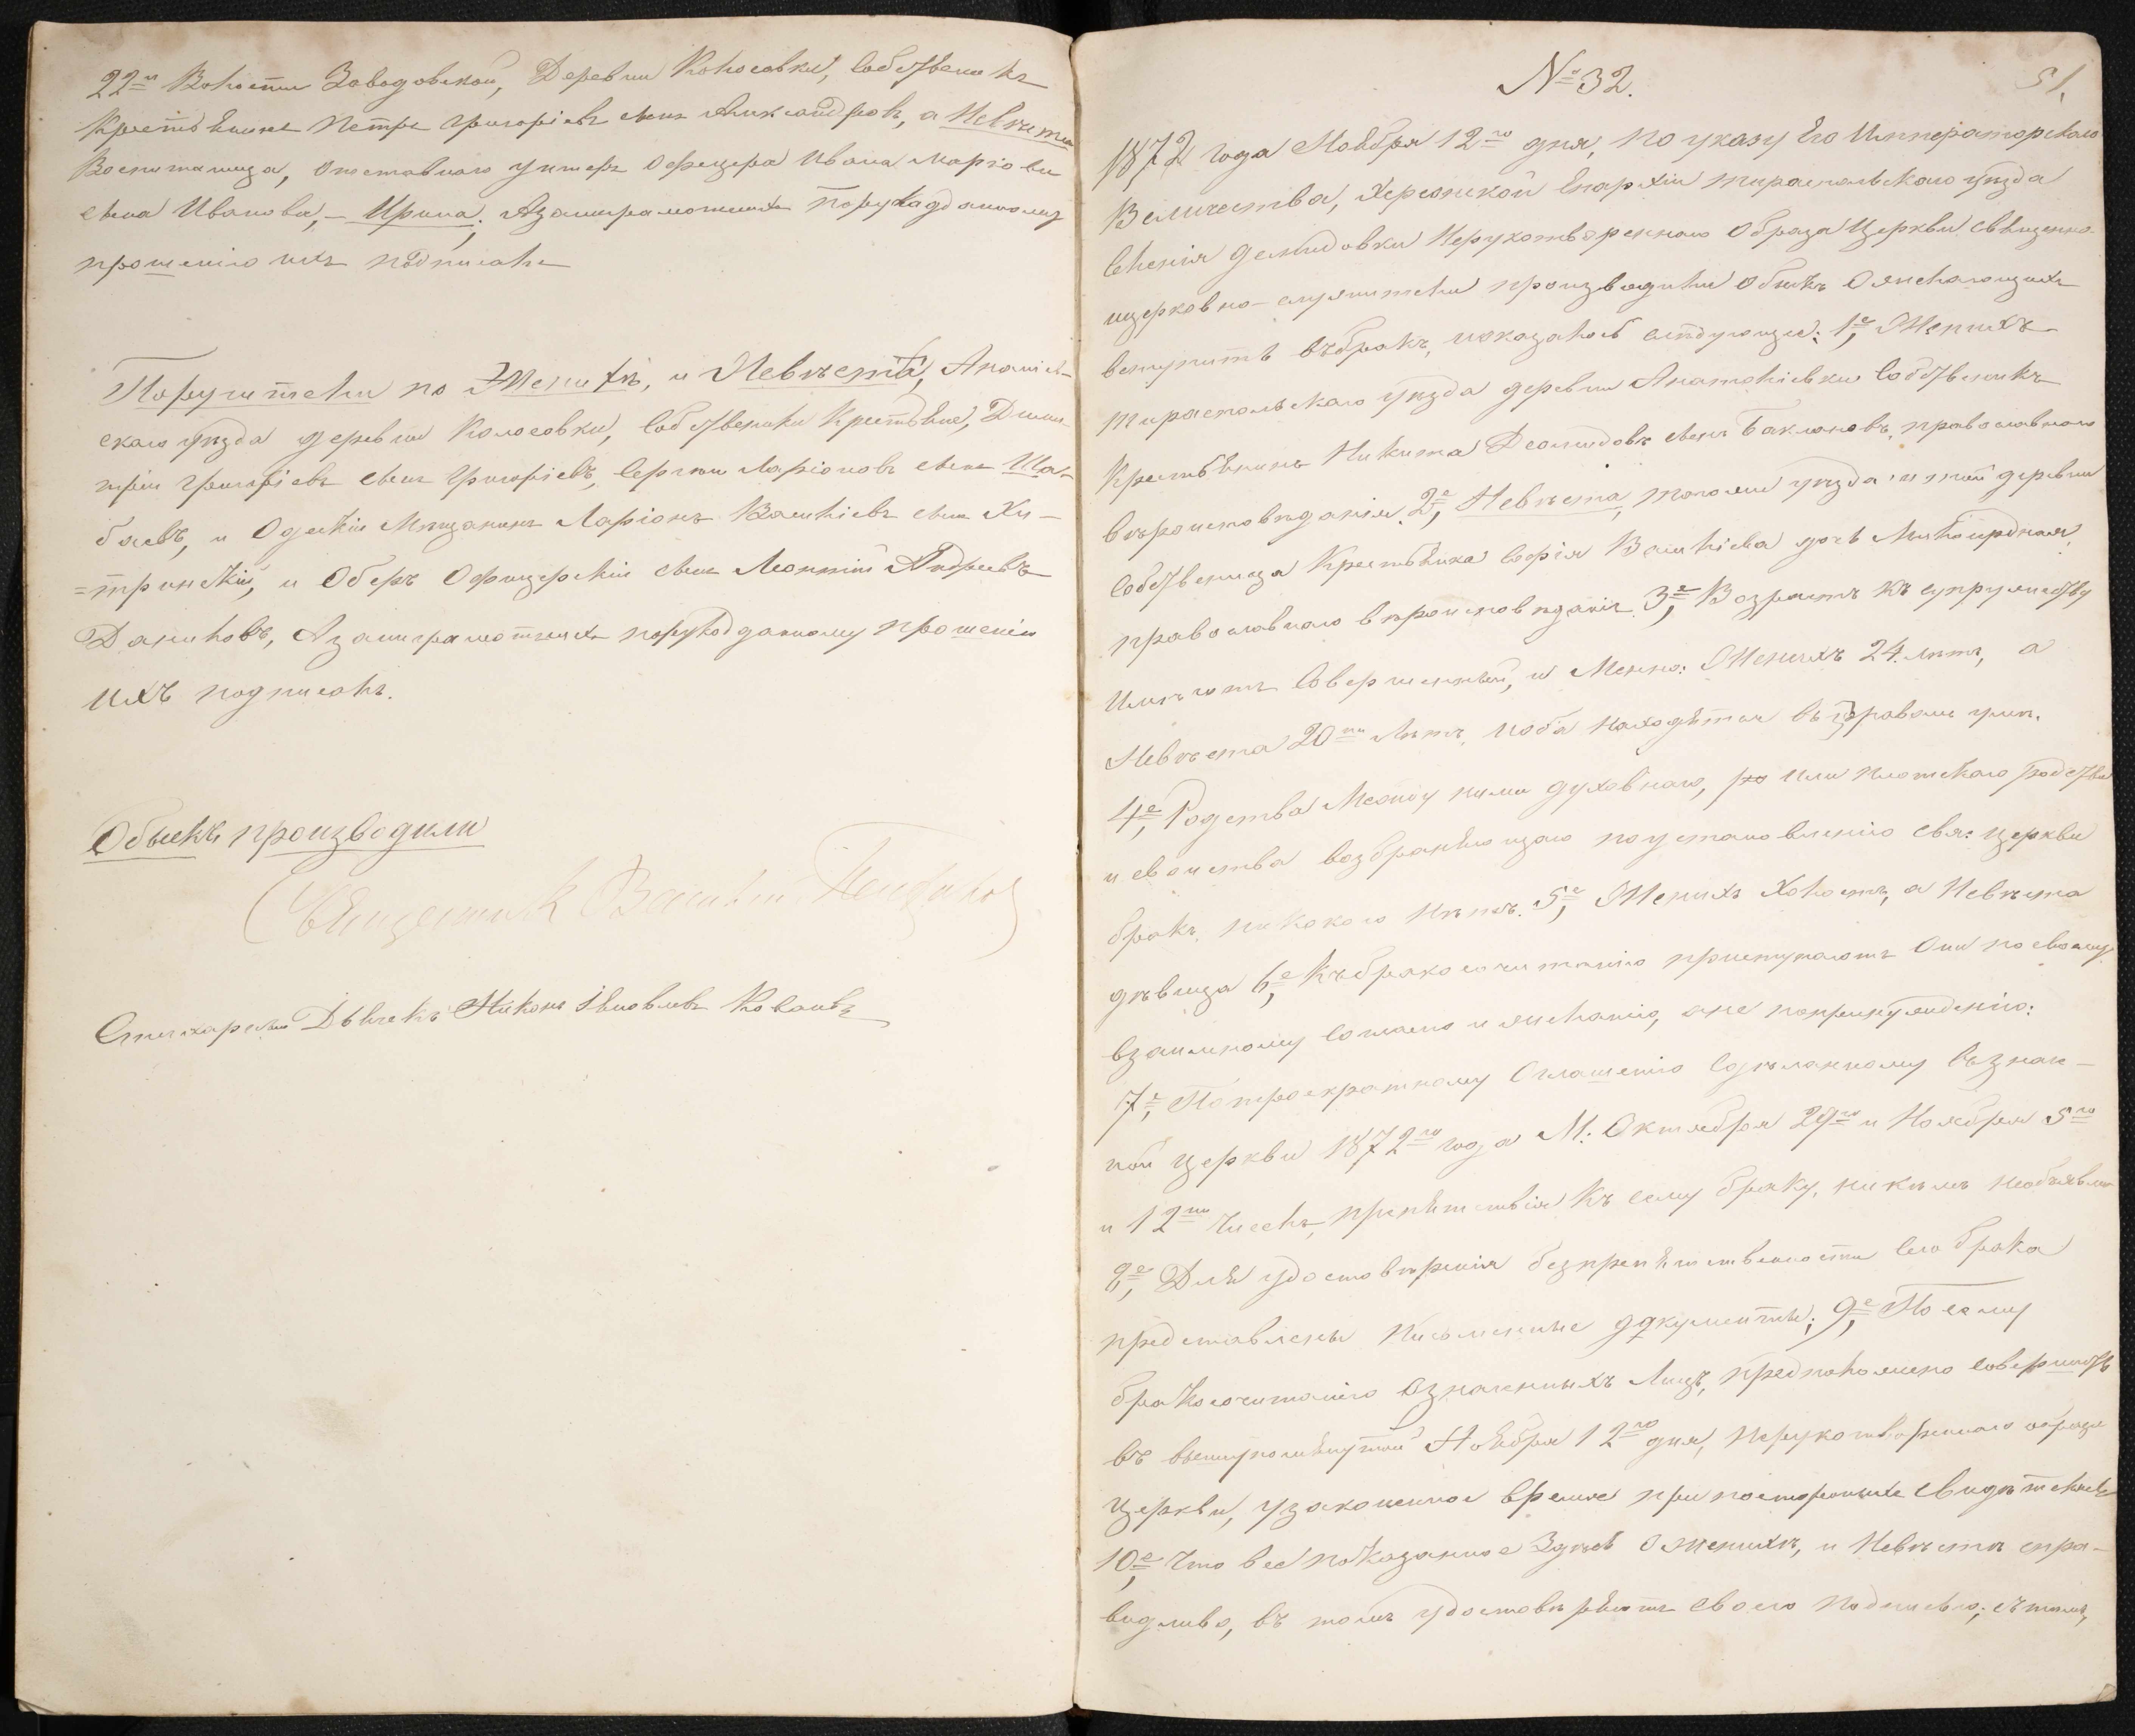 22й Волости Заводовской, Деревни Колосовки, Собственикъ
Крестьянинъ Петръ Григоріевъ сынъ Александровъ, а Невѣста
Воспитаница, отставнаго унтеръ Офецера Ивана Маріови
сына Иванова, – Ирина. А за неграмотныхъ по рукоданному
прошенію ихъ подписалъ
Поручители по Женихѣ, и Невѣстѣ, Ананіев-
скаго уѣзда деревни Колосовки, Собственики Крестьяне, Дими-
трій Григоріевъ сынъ Григоріевъ, Сергѣй Ларіоновъ сынъ Ша-
баевъ, и Одескій Мещанинъ Ларіонъ Василіевъ сынъ Хи-
=тринскій, и Оберъ Офицерскій сынъ Леонтій Андреевъ
Даниловъ, А за неграмотныхъ порукоданному прошенію
ихъ подписалъ.
Обыскъ производили
Священникъ Василій
Стихарный Дьячекъ Никонъ Яковлевъ
№ 32.
51.
1872 года Ноября 12го дня, по указу Его Императорскаго
Величества, Херсонской Епархіи тираспольскаго уѣзда
селенія Демидовки Нерукотвореннаго Образа Церкви священно-
церковно-служители производили обыскъ О желающихъ
вступить въ бракъ, и оказалось слѣдующее: 1е, Женихъ
тираспольскаго уѣзда деревни Анатоліевки Собственикъ
Крестьянинъ Никита Деомидовъ сынъ Баклановъ, православнаго
вѣроисповѣданія. 2е, Невѣста, тогоже уѣзда и той деревни
Собственица Крестьянка Софія Василіева дочь
православнаго вѣроисповѣданія. 3е, Возрастъ къ супружеству
Имѣютъ Совершенный, и Менно: Женихъ 24. лѣтъ, а
Невѣста 20ти Лѣтъ, и оба находятся въ здравомъ умѣ.
4е, Родства Между ними духовнаго, ро или плотскаго родства
и свойства возбраняющаго по установленію свя: церкви
бракъ, никакого нѣтъ. 5е, Женихъ Холостъ, а Невѣста
дѣвица 6е, Къ бракосочитанію приступаютъ Они по своему
взаимному согласію и желанію, а не по принужденію:
7е, По троекратному Оглашенію Сдѣланному въ знач-
ной церкви 1872го года М: Октября 29го и Ноября 5го
и 12го чиселъ, препятствія Къ сему браку, никѣмъ необъявлено
8е, Для удостовѣренія безпрепятственности сего брака
представлены Письменные документы; 9е, По сему
бракосочитанію Означенныхъ Лицъ, предположено совершить
въ вышеупомянутой Ноября 12го дня, Нерукотвореннаго образа
Церкви, узаконенное время при постороннихъ свидѣтеляхъ
10е, Что все показанное Здѣсь О женихѣ, и Невѣстѣ спра-
ведливо, въ томъ удостовѣряютъ своею подписью; сѣтѣмъ,